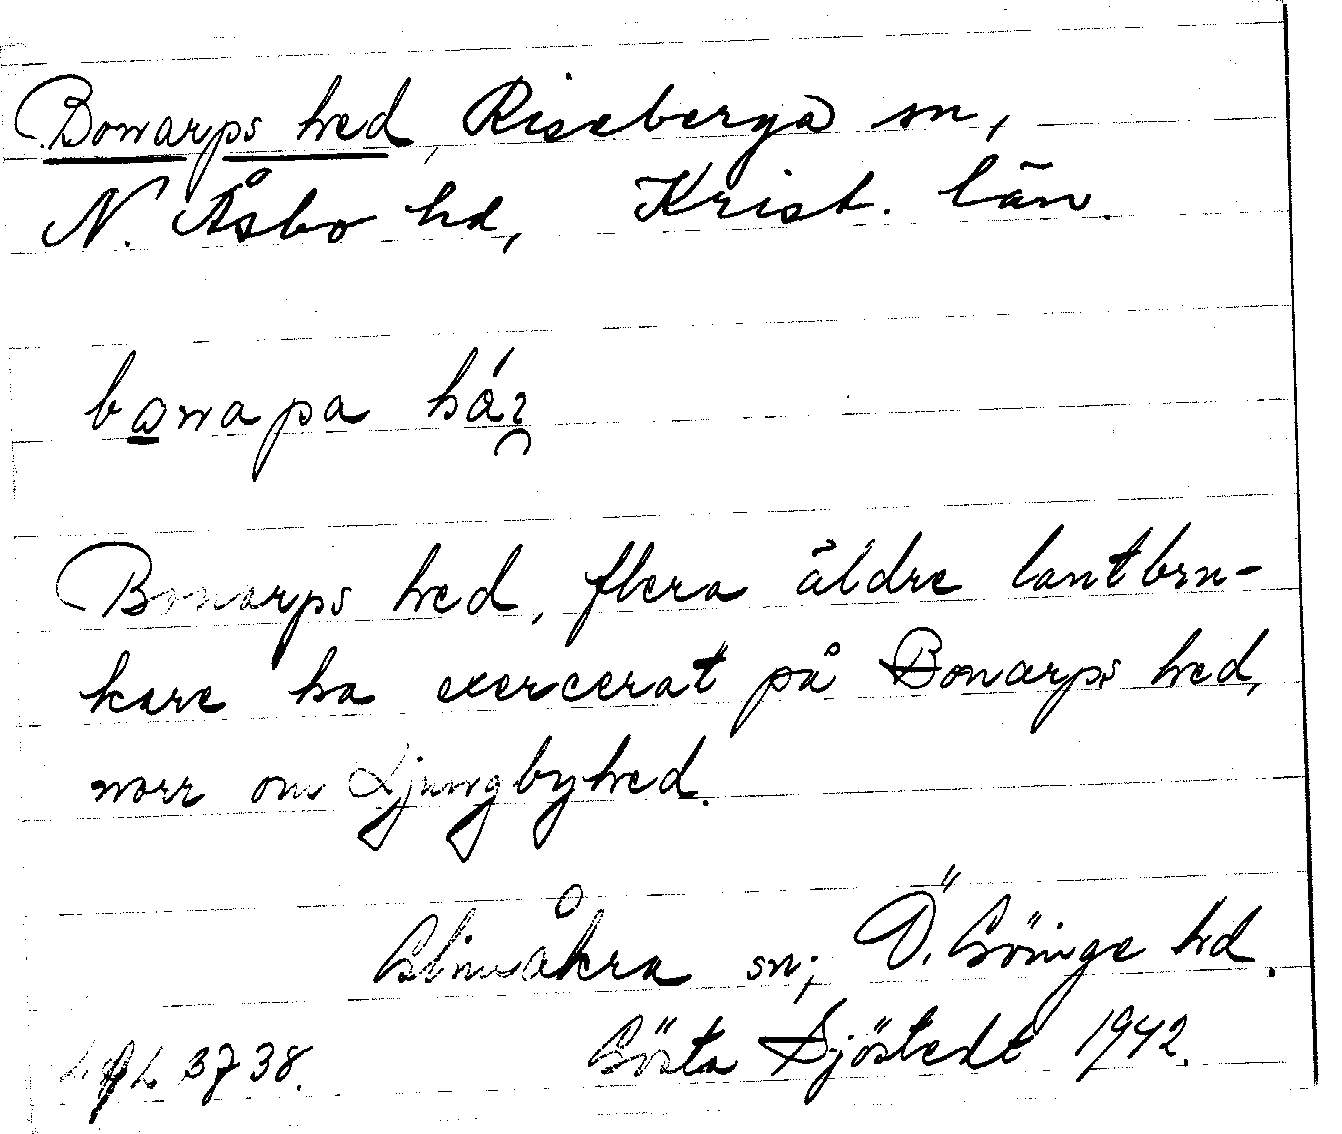 Bonarps hed, Riseberga sn,
N. Åsbo hd, Krist. län.
bonapa
Bonarps hed, flera äldre lantbru-
kare ha exercerat på Bonarps hed,
norr om Ljungbyhed.
Glimåkra sn; Ö. Göinge hd.
Gösta Sjöstedt 1942.
3738.